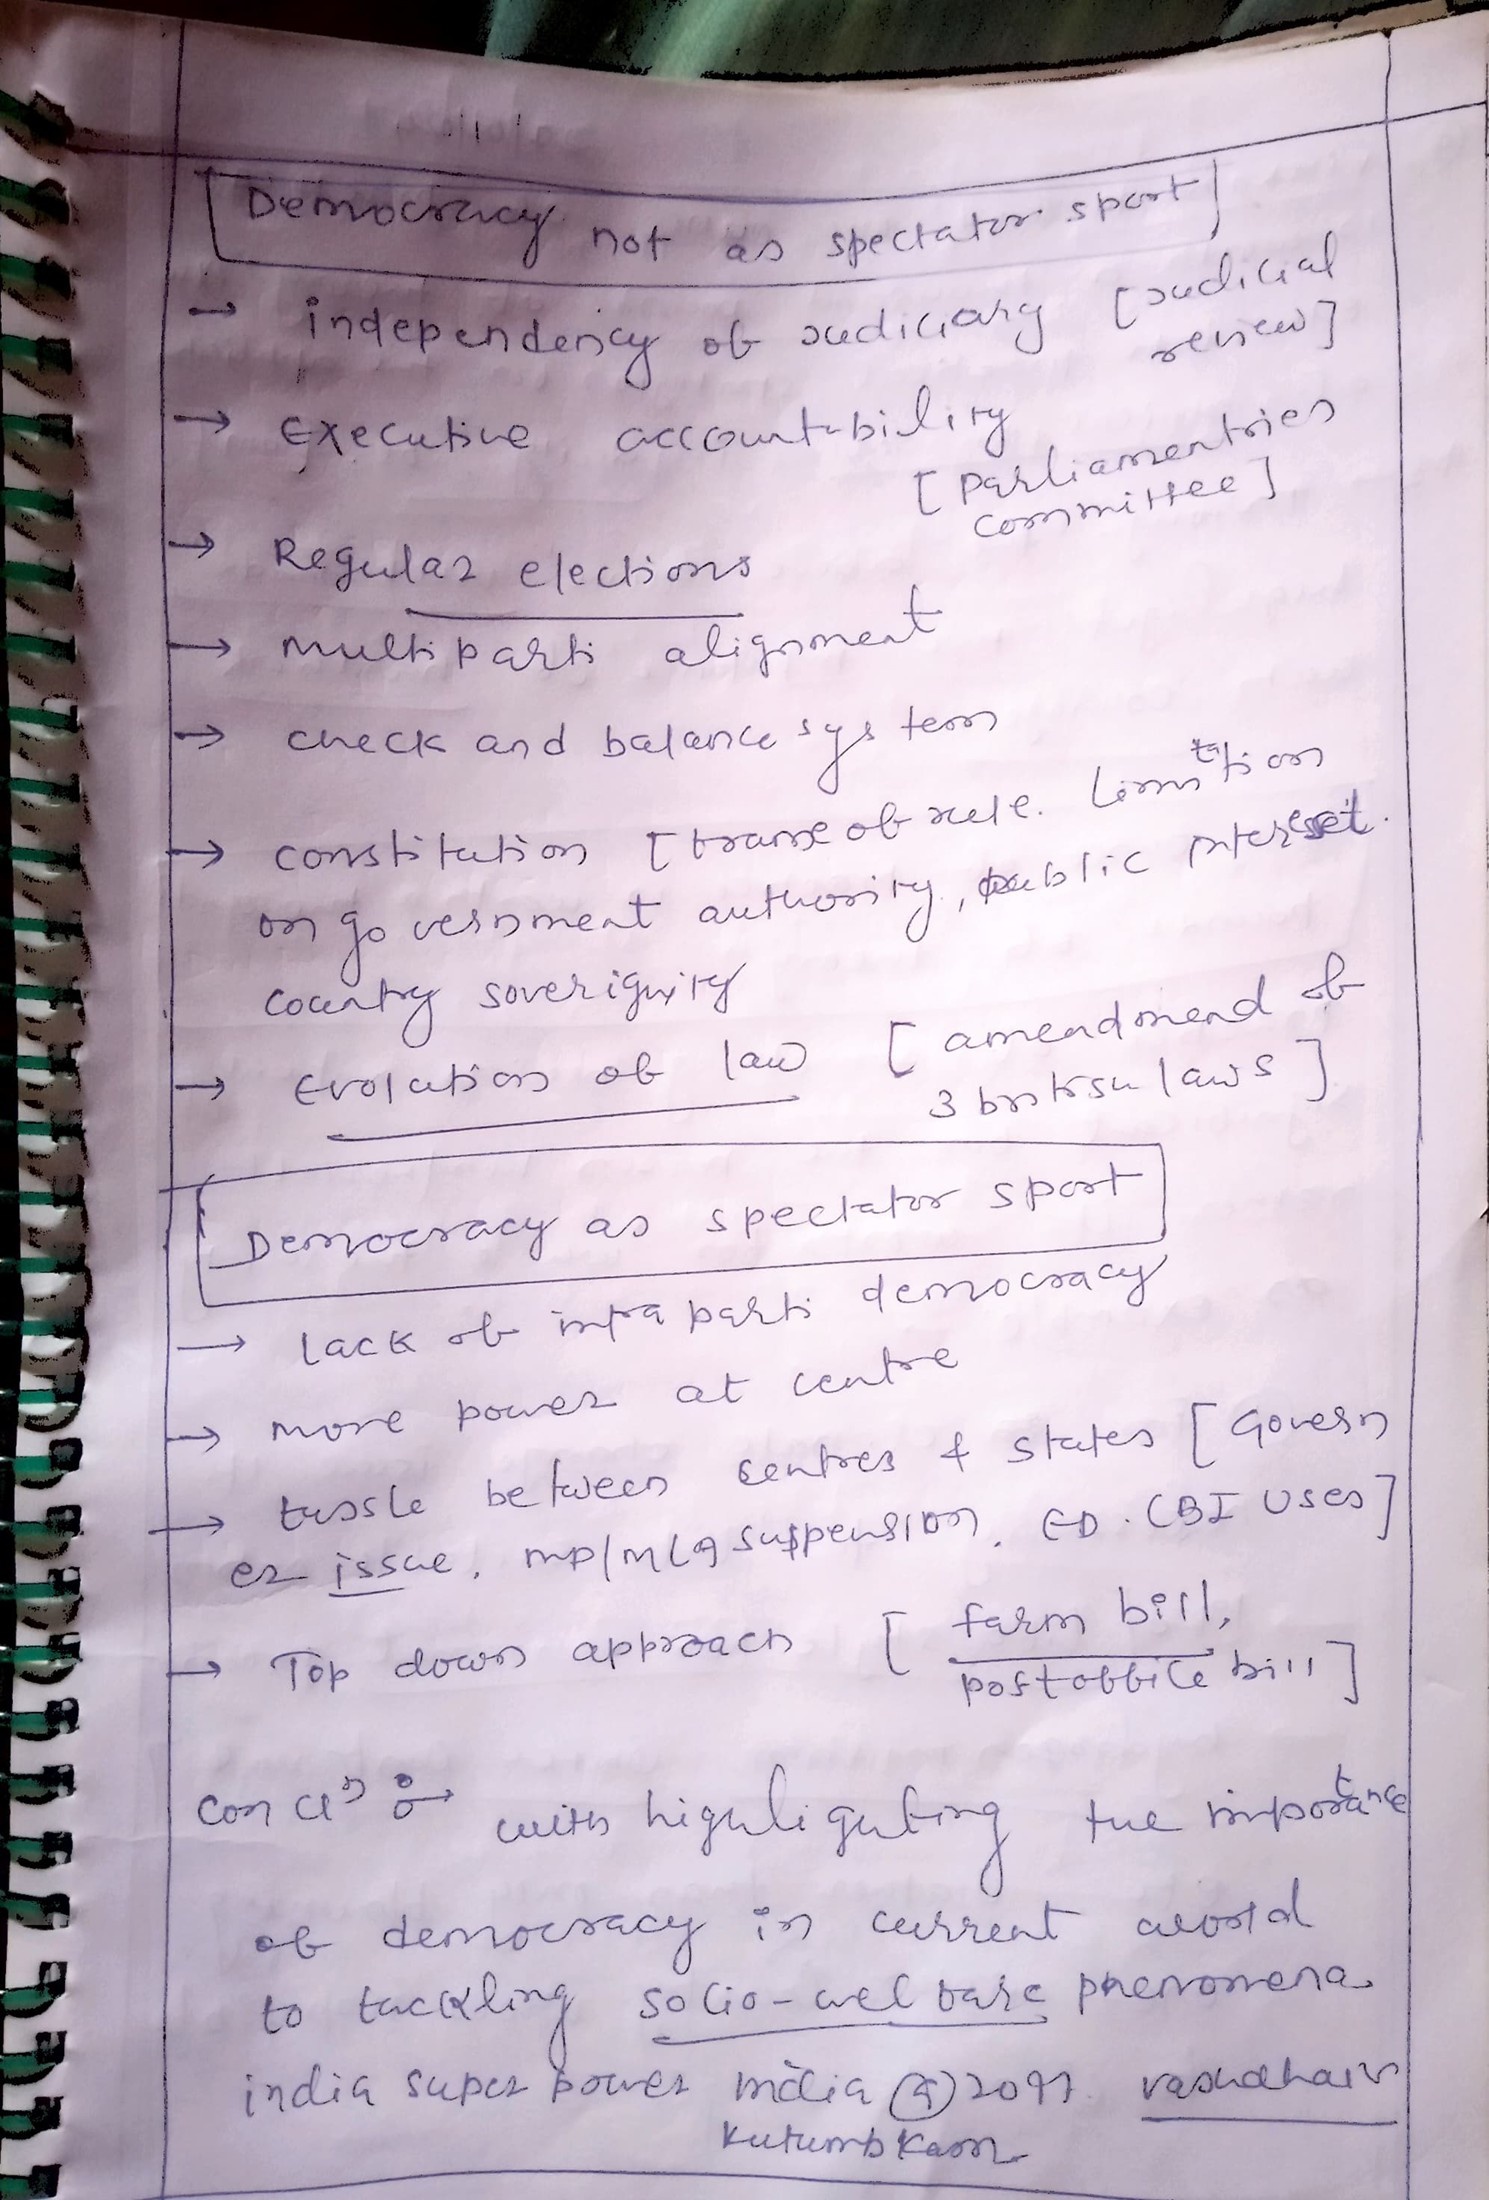 Democracy not as spectator sport
→ independency of Judiciary [Judicial
review]
→ Executive accountability
[Parliamentries
committee]
→ Regular elections
→ multi parti alignment
→ check and balance system
→ constitution [frame of rule. Limitation
on government authority, public interest.
country soverignity
→ Evolution of law [amendmend of
3 british laws]
Democracy as spectator sport
→ Lack of intra parti democracy
→ more power at centre
→ tussle between centres & states [Govern
er issue, MP/MLA suspension. ED. CBI uses]
→ Top down approach [farm bill,
post office bill]
Concln :→ with highlighting the importance
of democracy in current world
to tackling socio-welfare phenomena
india super power india @ 2047. vashudhaiv
kutumbkam